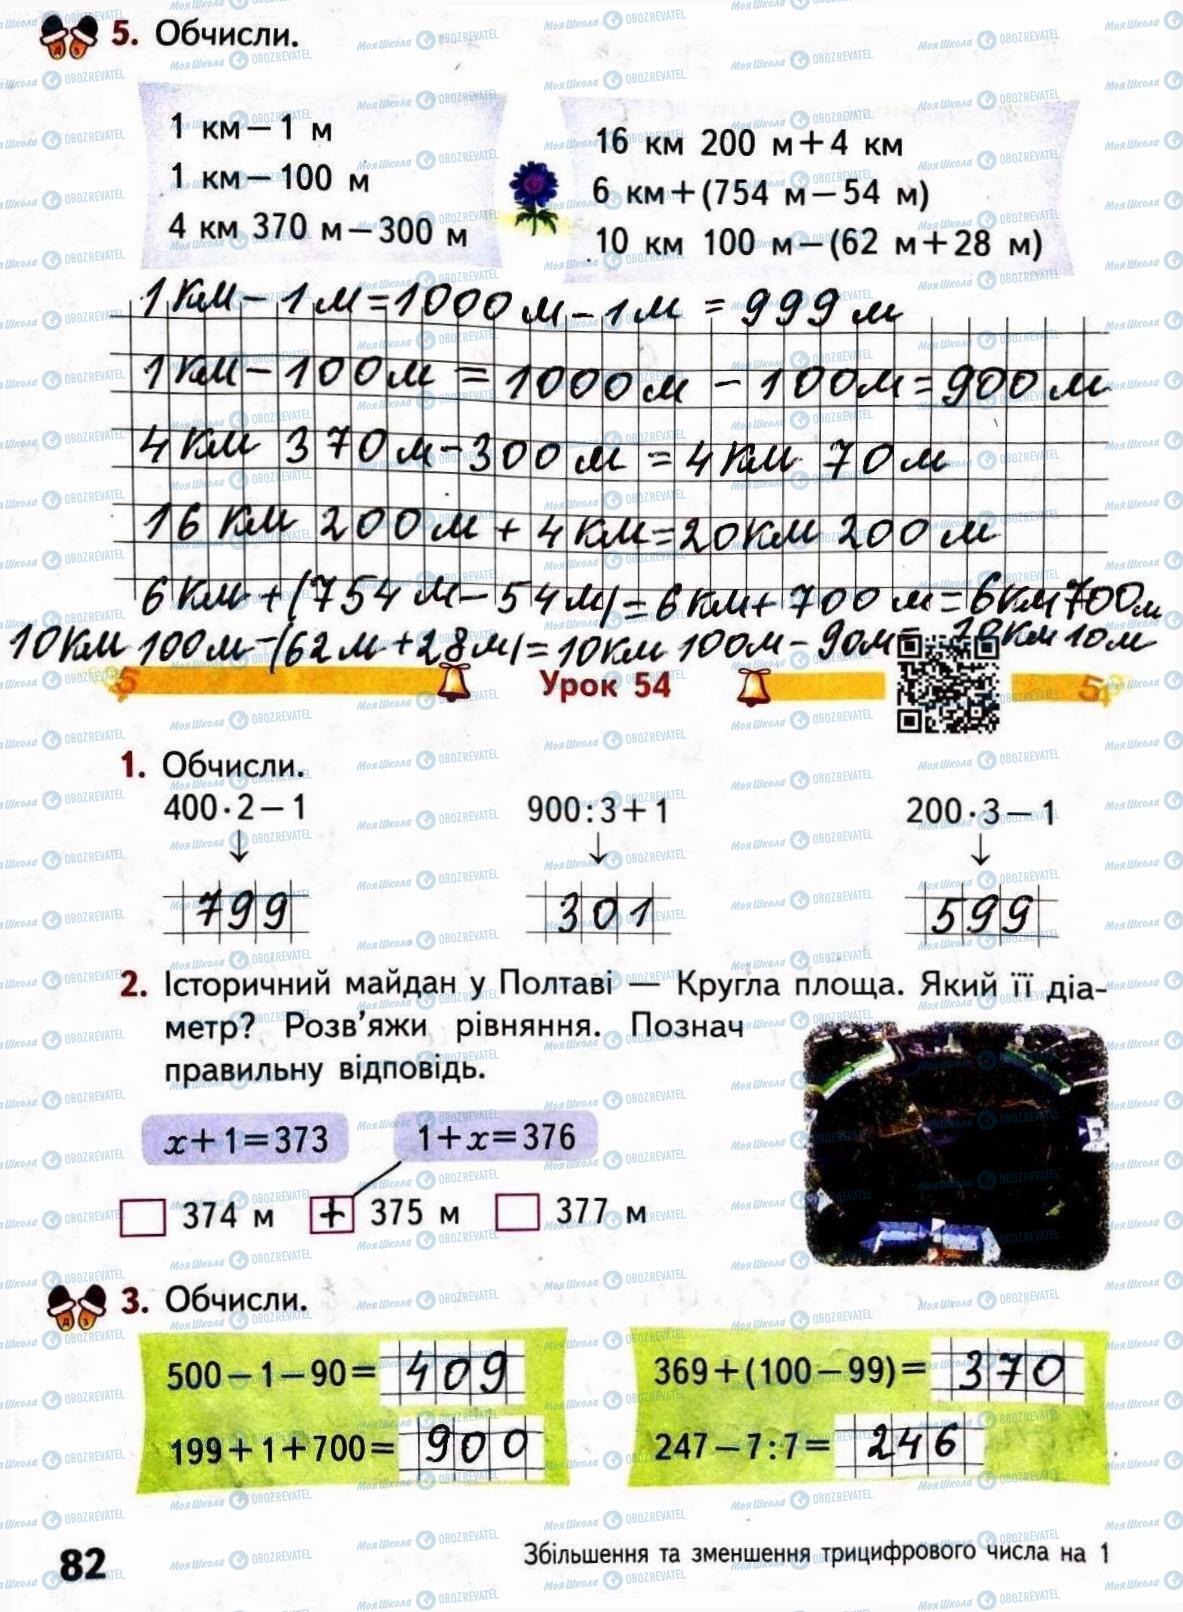 5. Обчисли.
1 км – 1 м
1 км – 100 м
4 км 370 м – 300 м
16 км 200 м + 4 км
6 км + (754 м – 54 м)
10 км 100 м – (62 м + 28 м)
1 км – 1 м = 1000 м – 1 м = 999 м
1 км – 100 м = 1000 м – 100 м = 900 м
4 км 370 м – 300 м = 4 км 70 м
16 км 200 м + 4 км = 20 км 200 м
6 км + (754 м – 54 м) = 6 км + 700 м = 6 км 700 м
10 км 100 м – (62 м + 28 м) = 10 км 100 м – 90 м = 10 км 10 м
Урок 54
1. Обчисли.
400 · 2 – 1 900 : 3 + 1 200 · 3 – 1
799 301 599
2. Історичний майдан у Полтаві — Кругла площа. Який її діа-
метр? Розв'яжи рівняння. Познач
правильну відповідь.
x + 1 = 373 1 + x = 376
374 м + 375 м 377 м
3. Обчисли.
500 – 1 – 90 = 409
199 + 1 + 700 = 900
369 + (100 – 99) = 370
247 – 7 : 7 = 246
82 Збільшення та зменшення трицифрового числа на 1
МояШкола OBOZREVATEL